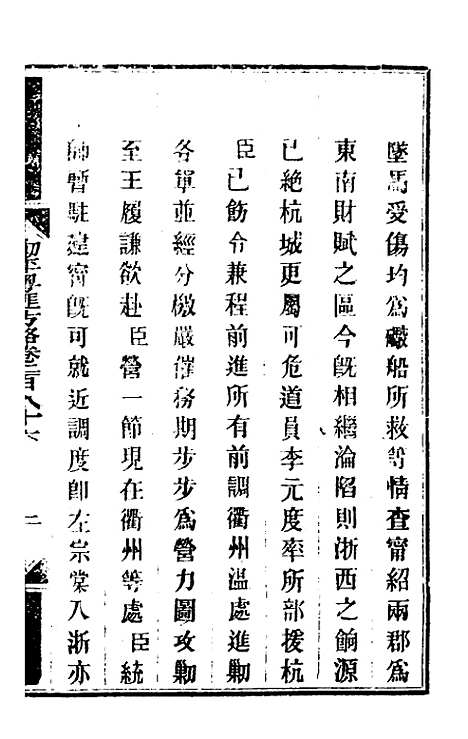 墜馬受傷均爲礮船所救等情查甯紹兩郡爲
東南財賦之區今旣相繼淪陷則浙西之餉源
已絶杭城更屬可危道員李元度率所部援杭
臣已飭令兼程前進所有前調衢州溫處進勦
各軍並經分檄嚴催務期步步爲營力圖攻勦
至王履謙欲赴臣營一節現在衢州等處臣統
師暫駐建甯旣可就近調度卽左宗棠入浙亦
剿平粵匪方略卷二百八十六
二